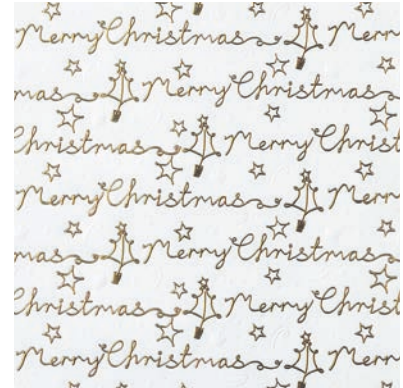 Merry Christmas Merr
mas Merry Christmas
Christmas Merry Chris
Merry Christmas Mer
mas Merry Christmas
Christmas Merry Chris
Merry Christmas Mer